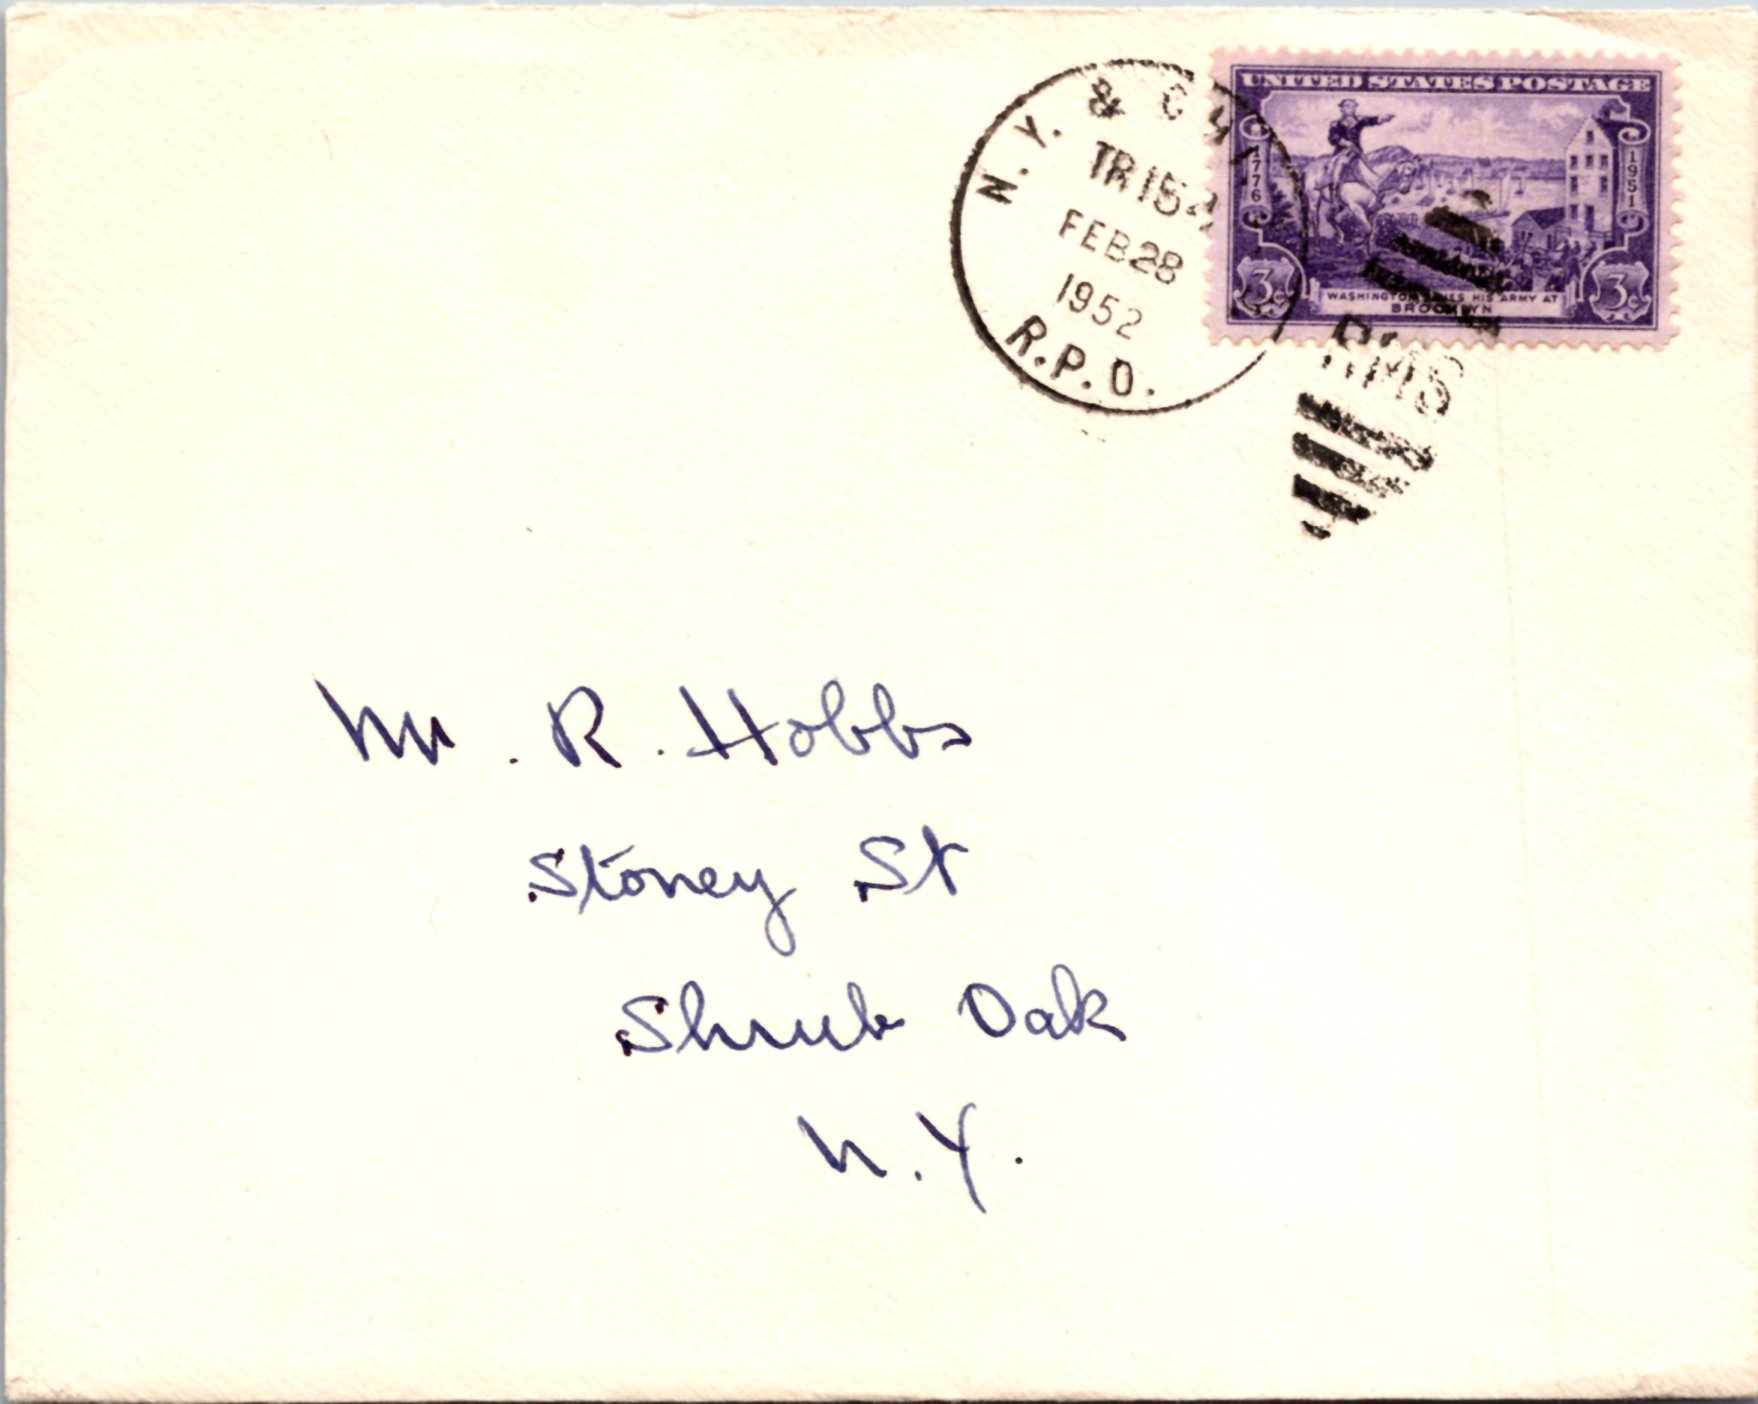 N.Y. & CHI.
TR 15
FEB 28
1952
R.P.O.
RMS
UNITED STATES POSTAGE
1776
1951
3¢
WASHINGTON SAVES HIS ARMY AT
BROOKLYN
3¢
Mr. R. Hobbs
Stoney St
Shrub Oak
N.Y.